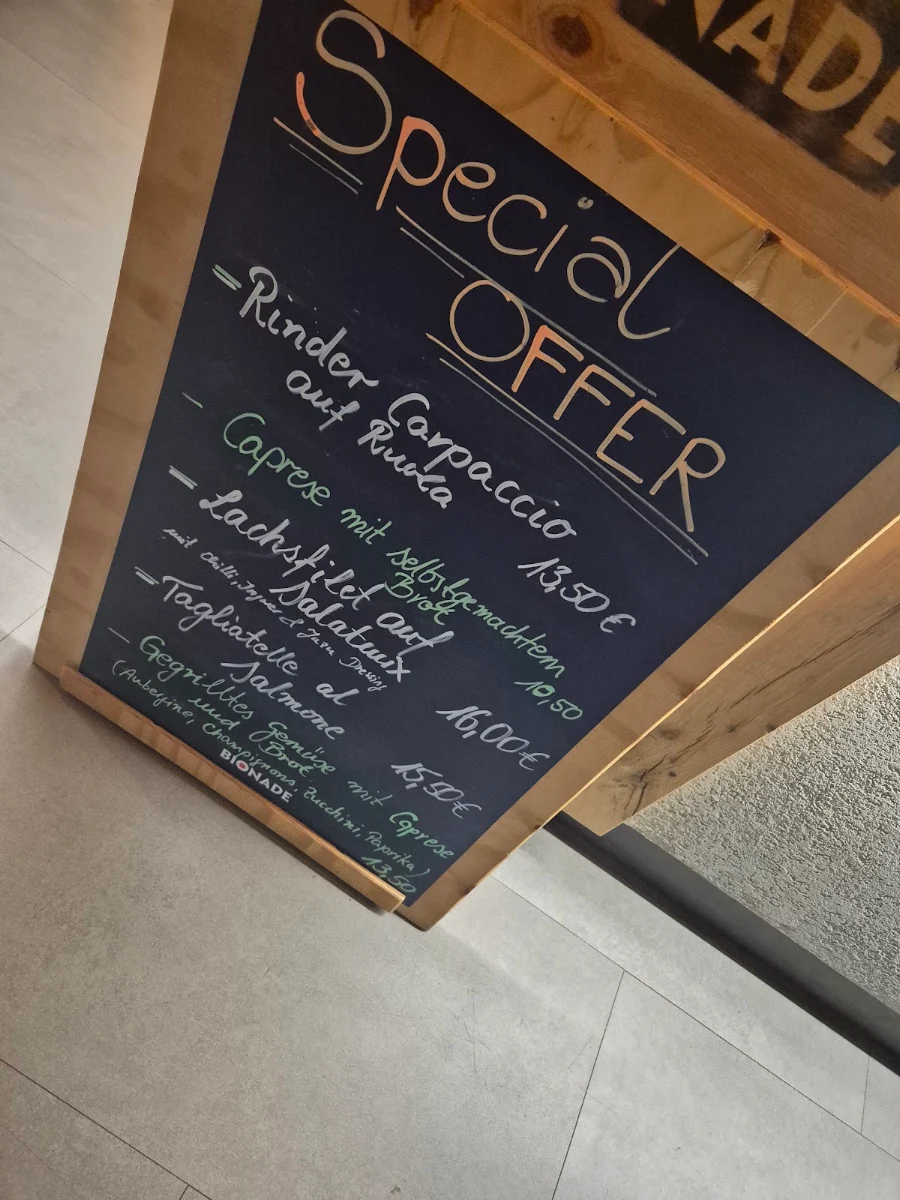 NADE
Special
OFFER
= Rinder Carpaccio
auf Rucola
13,50 €
- Caprese mit selbstgemachtem
Brot
10,50
= Lachsfilet auf
Salatmix
mit Chilli, Ingwer & Dressing
16,00 €
= Tagliatelle al
Salmone
15,50 €
- Gegrilltes Gemüse mit Caprese
und Brot
(Aubergine, Champignons, Zucchini, Paprika)
13,50
BIONADE